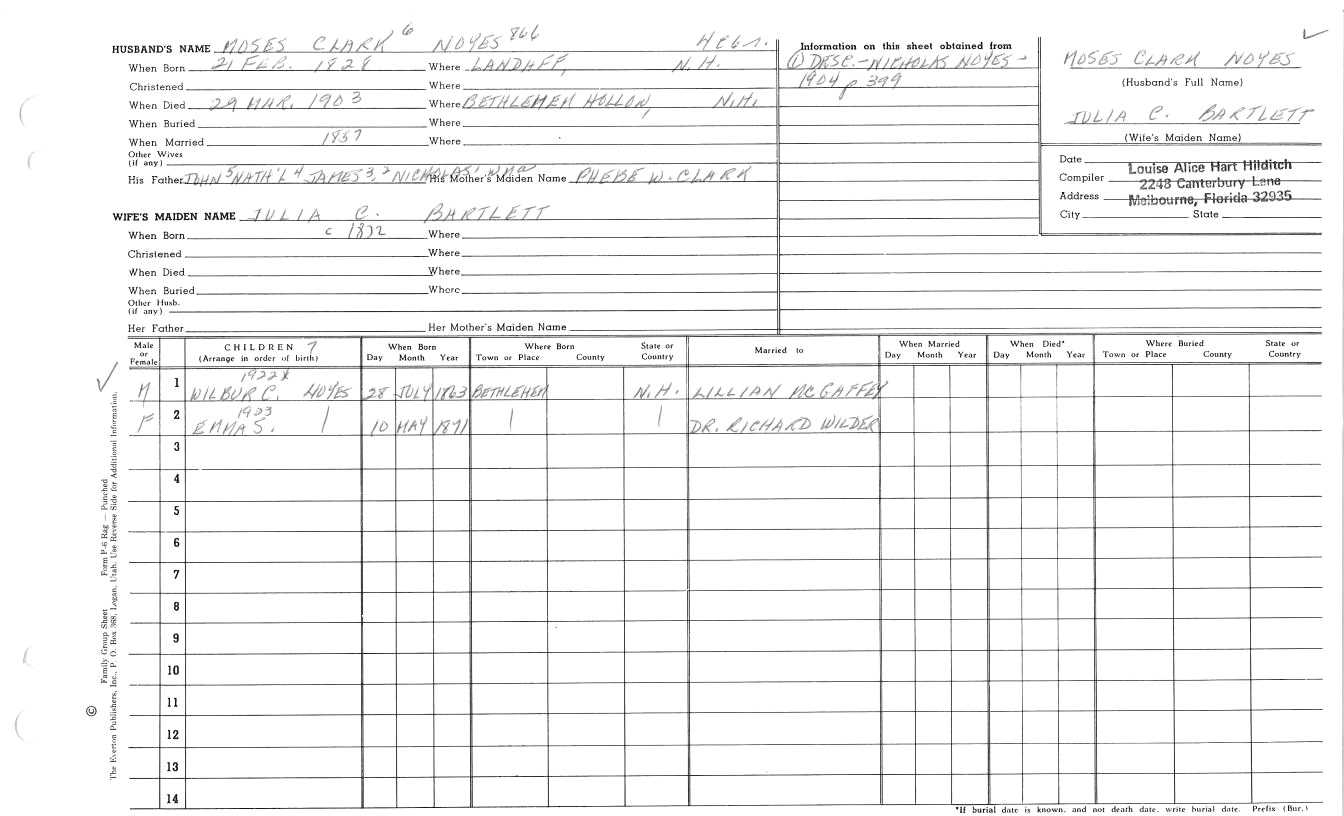 HUSBAND'S NAME MOSES CLARK 6 NOYES 866
Information on this sheet obtained from
When Born 21 FEB. 1828 Where LANDAFF, N.H.
① DESC. - NICHOLAS NOYES -
Christened Where
1904 p 399
When Died 29 MAR. 1903 Where BETHLEHEM HOLLOW, N.H.
When Buried Where
When Married 1857 Where
Other Wives
(if any)
His Father JOHN 5 NATH'L 4 JAMES 3, 2 NICHOLAS 1 His Mother's Maiden Name PHEBE W. CLARK
MOSES CLARK NOYES
(Husband's Full Name)
JULIA C. BARTLETT
(Wife's Maiden Name)
Date
Compiler Louise Alice Hart Hilditch
2248 Canterbury Lane
Address Melbourne, Florida 32935
City State
WIFE'S MAIDEN NAME JULIA C. BARTLETT
When Born c 1832 Where
Christened Where
When Died Where
When Buried Where
Other Husb.
(if any)
Her Father Her Mother's Maiden Name
Male or Female
CHILDREN 7
(Arrange in order of birth)
When Born
Day Month Year
Where Born
Town or Place County
State or Country
Married to
When Married
Day Month Year
When Died*
Day Month Year
Where Buried
Town or Place County
State or Country
1922
M 1 WILBUR C. NOYES 28 JULY 1863 BETHLEHEM N.H. LILLIAN MCGAFFEY
1923
F 2 EMMA S. 10 MAY 1871 DR. RICHARD WILDER
3
4
5
6
7
8
9
10
11
12
13
14
*If burial date is known, and not death date, write burial date. Prefix (Bur.)
Family Group Sheet Form P-6 Rag — Punched
© The Everton Publishers, Inc., P. O. Box 368, Logan, Utah. Use Reverse Side for Additional Information.